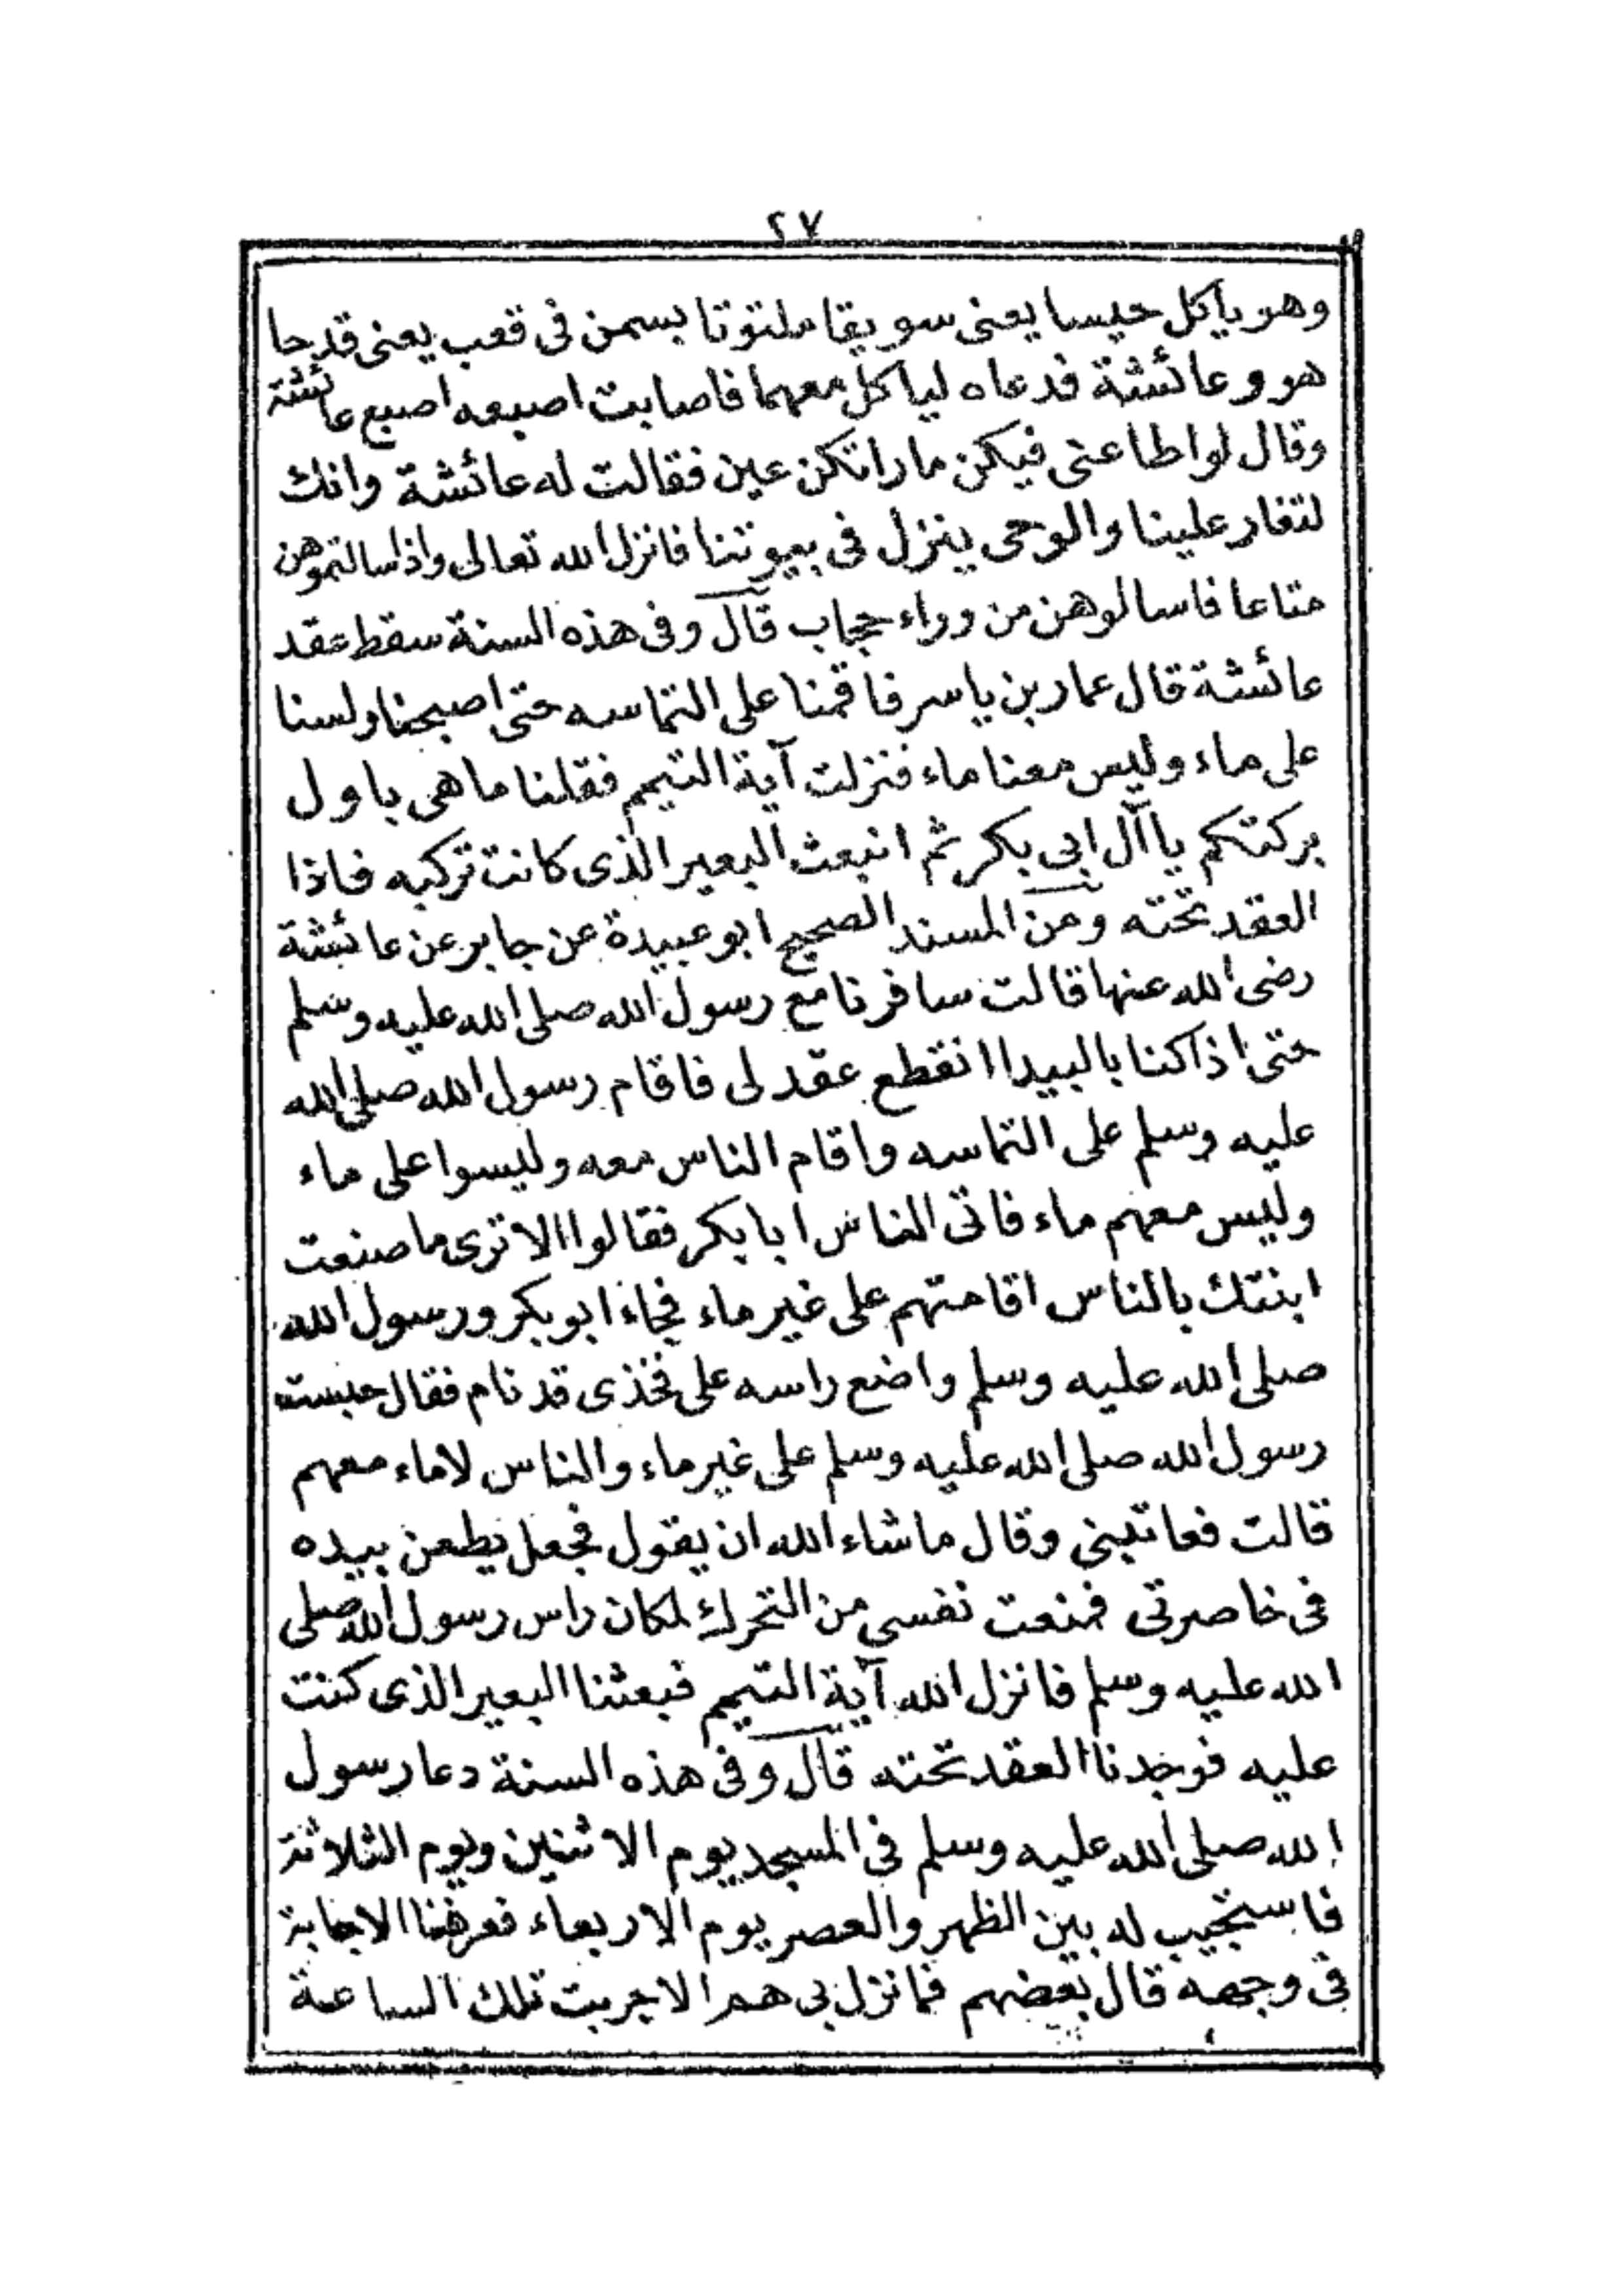 ٢٧
وهو يأكل حيسا يعنى سويقا ملتوتا بسمن فى قعب يعنى قدحا
هو وعائشة فدعاه ليأكل معهما فاصابت اصبعه اصبع عائشة
وقال لواطاعنى فيكن ماراتكن عين فقالت له عائشة وانك
لتغار علينا والوحى ينزل فى بيوتنا فانزل الله تعالى واذا سالتموهن
متاعا فاسالوهن من وراء حجاب قال وفى هذه السنة سقط عقد
عائشة قال عمار بن ياسر فاقمنا على التماسه حتى اصبحنا ولسنا
على ماء وليس معنا ماء فنزلت آية التيمم فقلنا ما هى باول
بركتكم يا آل ابى بكر ثم انبعث البعير الذى كانت تركبه فاذا
العقد تحته ومن المسند الصحيح ابو عبيدة عن جابر عن عائشة
رضى الله عنها قالت سافرنا مع رسول الله صلى الله عليه وسلم
حتى اذا كنا بالبيدا انقطع عقد لى فاقام رسول الله صلى الله
عليه وسلم على التماسه واقام الناس معه وليسوا على ماء
وليس معهم ماء فاتى الناس ابا بكر فقالوا الا ترى ما صنعت
ابنتك بالناس اقامتهم على غير ماء فجاء ابو بكر ورسول الله
صلى الله عليه وسلم واضع راسه على فخذى قد نام فقال حبست
رسول الله صلى الله عليه وسلم على غير ماء والناس لاماء معهم
قالت فعاتبنى وقال ما شاء الله ان يقول فجعل يطعن بيده
فى خاصرتى فمنعت نفسى من التحرك لمكان راس رسول الله صلى
الله عليه وسلم فانزل الله آية التيمم فبعثنا البعير الذى كنت
عليه فوجدنا العقد تحته قال وفى هذه السنة دعا رسول
الله صلى الله عليه وسلم فى المسجد يوم الاثنين ويوم الثلاثة
فاستجيب له بين الظهر والعصر يوم الاربعاء فعرفنا الاجابة
فى وجهه قال بعضهم فما نزل بى هم الا جربت تلك الساعة